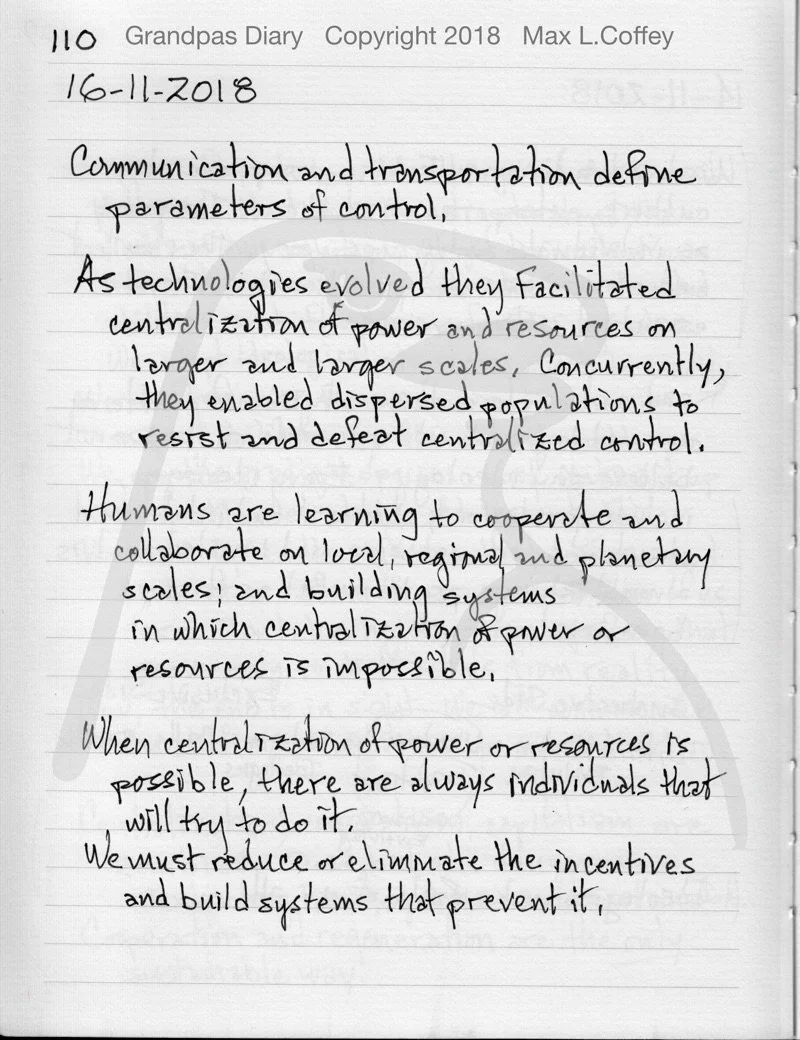 110 Grandpas Diary Copyright 2018 Max L.Coffey
16-11-2018
Communication and transportation define
parameters of control.
As technologies evolved they facilitated
centralization of power and resources on
larger and larger scales. Concurrently,
they enabled dispersed populations to
resist and defeat centralized control.
Humans are learning to cooperate and
collaborate on local, regional and planetary
scales; and building systems
in which centralization of power or
resources is impossible.
When centralization of power or resources is
possible, there are always individuals that
will try to do it.
We must reduce or eliminate the incentives
and build systems that prevent it.